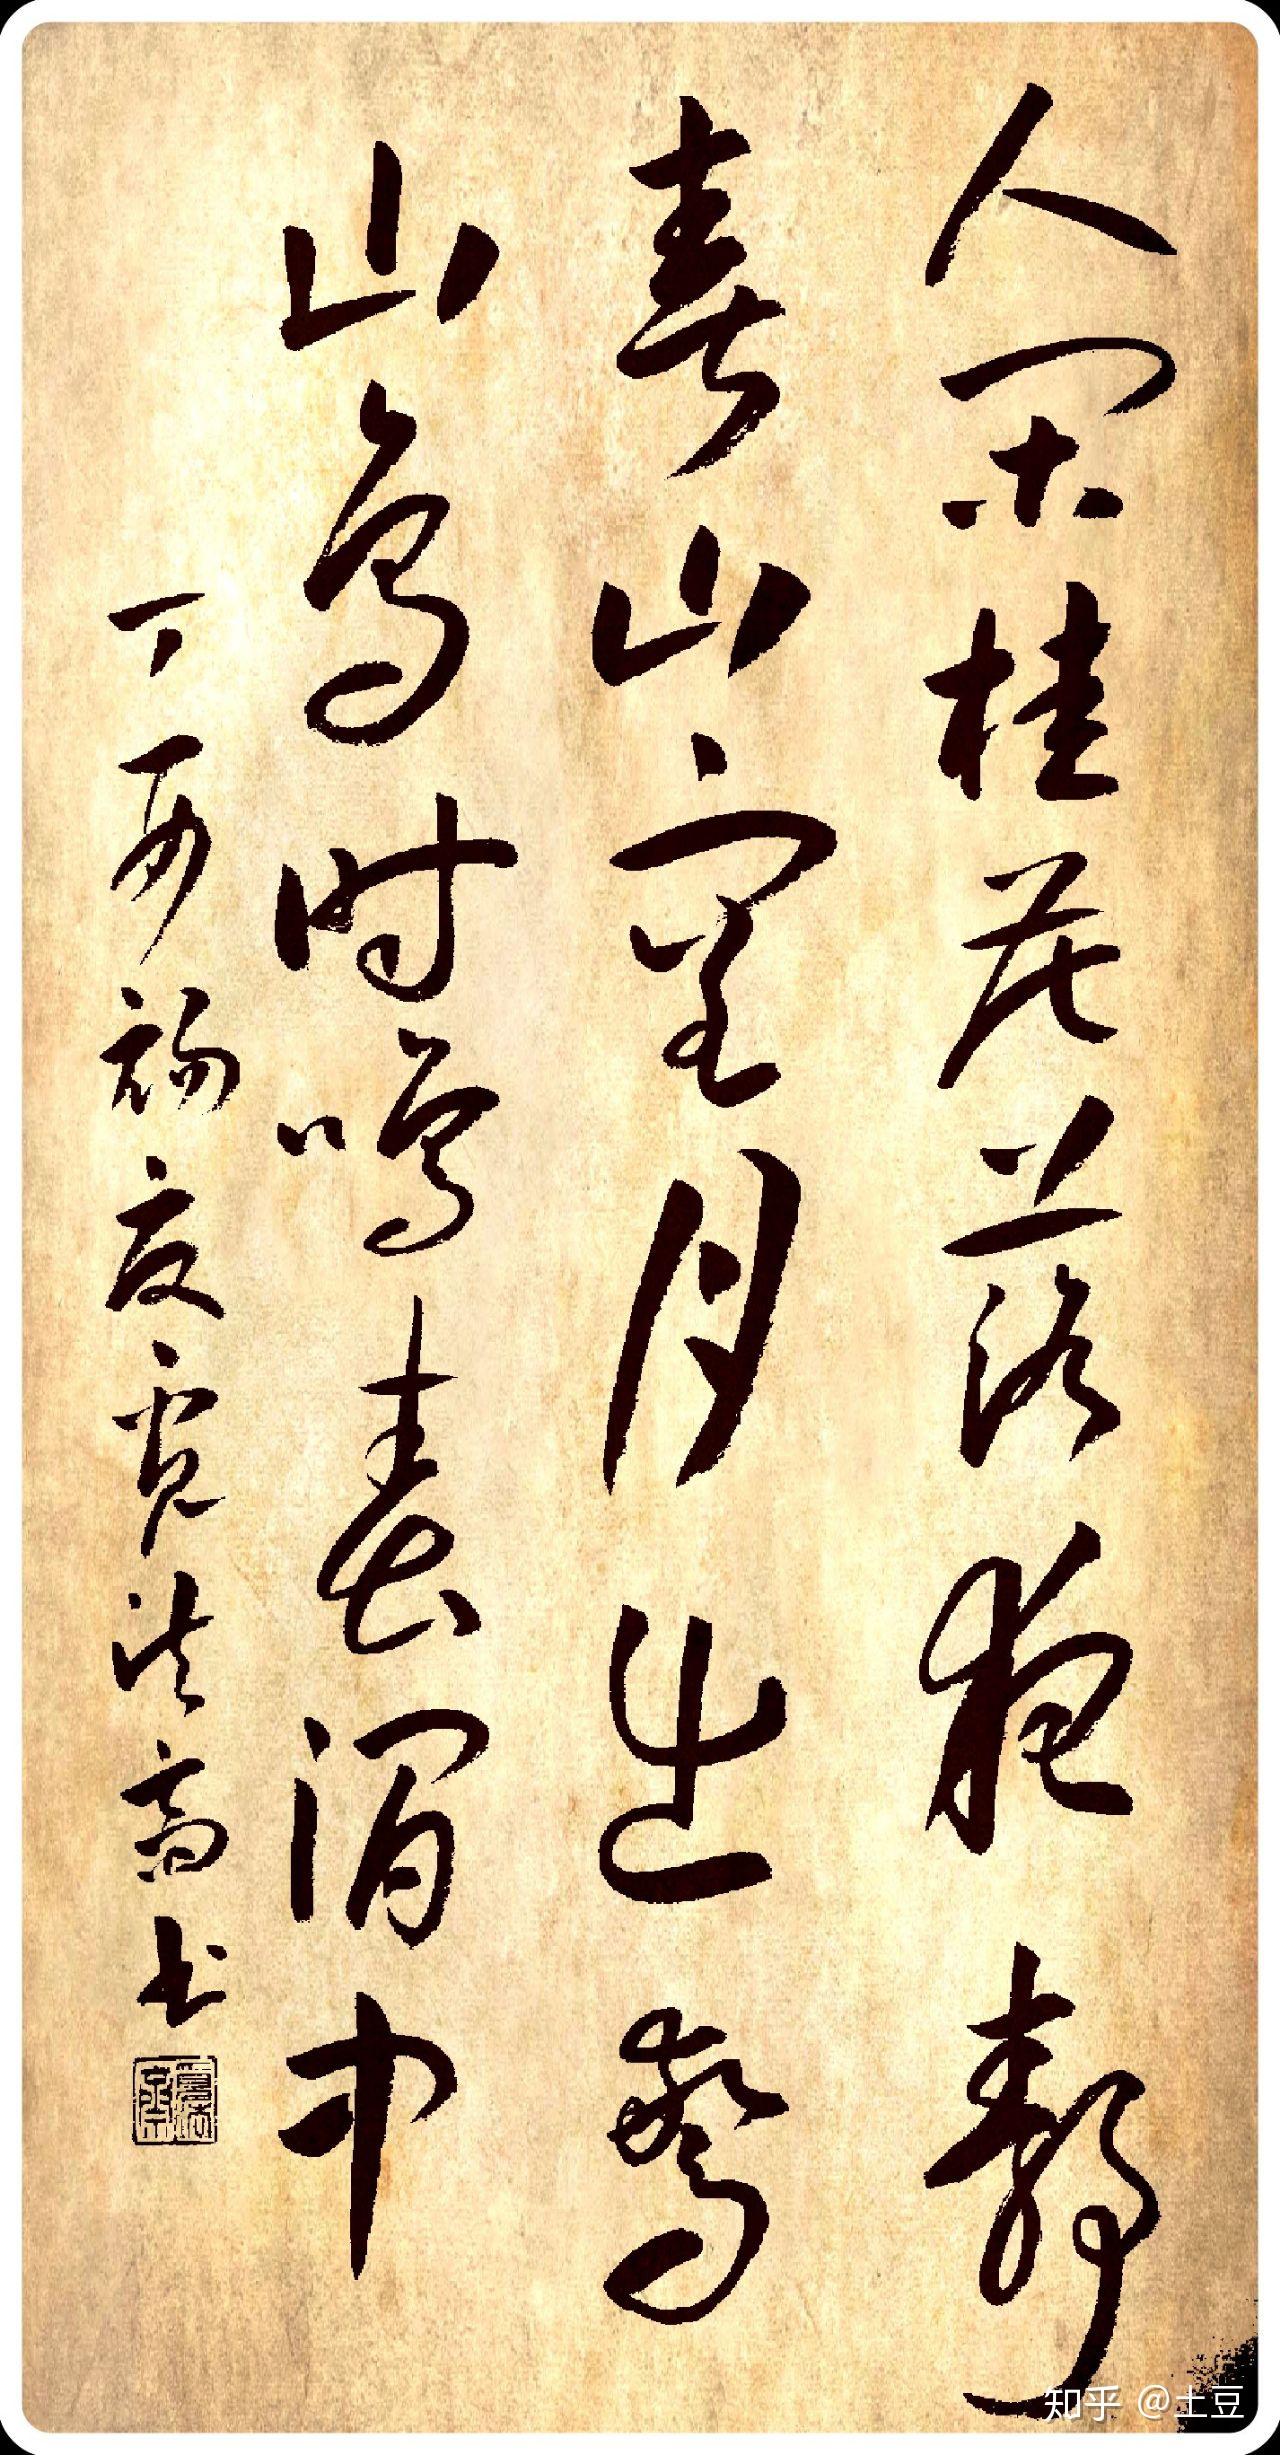 人闲桂花落夜静
春山空月出惊
山鸟时鸣春涧中
丁酉初夏书
知乎 @土豆